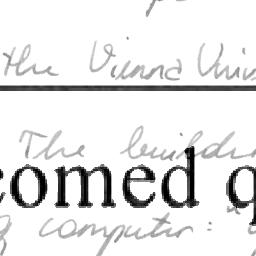 the Vienna Univ
The buildin
comed q
of computer: "